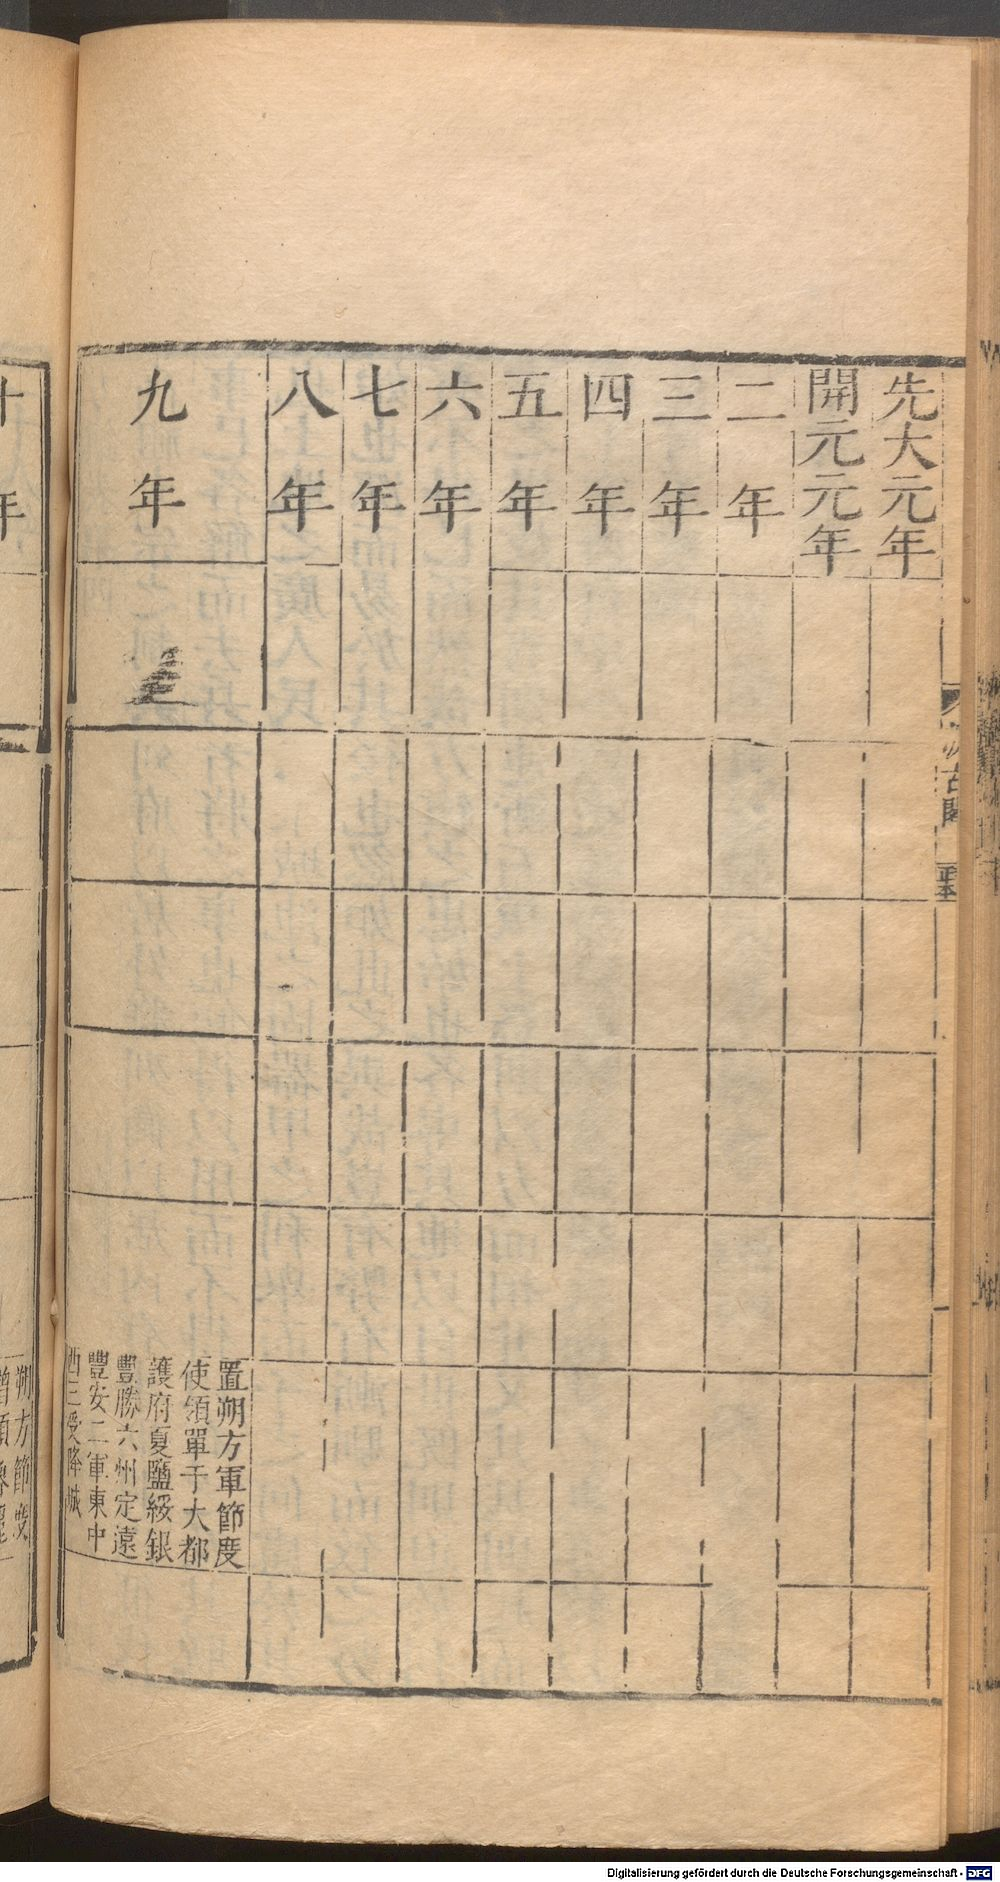 先大元年
開元元年
二年
三年
四年
五年
六年
七年
八年
九年
置朔方軍節度
使領單于大都
護府夏鹽綏銀
豐勝六州定遠
豐安二軍東中
西三受降城
汲古閣
年
朔方節度
Digitalisierung gefördert durch die Deutsche Forschungsgemeinschaft - DFG